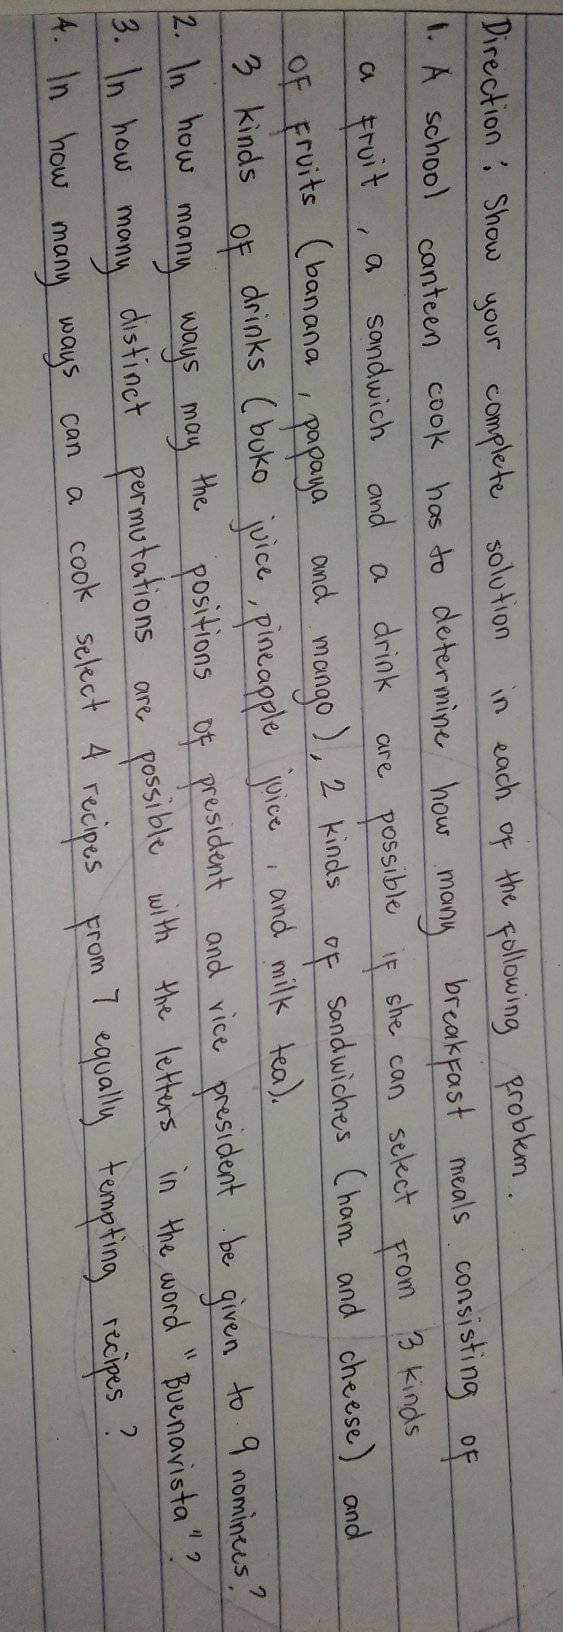 Direction : Show your complete solution in each of the following problem.
1. A school canteen cook has to determine how many breakfast meals consisting of
a fruit, a sandwich and a drink are possible if she can select from 3 kinds
of fruits (banana, papaya and mango), 2 kinds of sandwiches (ham and cheese) and
3 kinds of drinks (buko juice, pineapple juice, and milk tea).
2. In how many ways may the positions of president and vice president be given to 9 nominees?
3. In how many distinct permutations are possible with the letters in the word "Buenavista"?
4. In how many ways can a cook select 4 recipes from 7 equally tempting recipes?